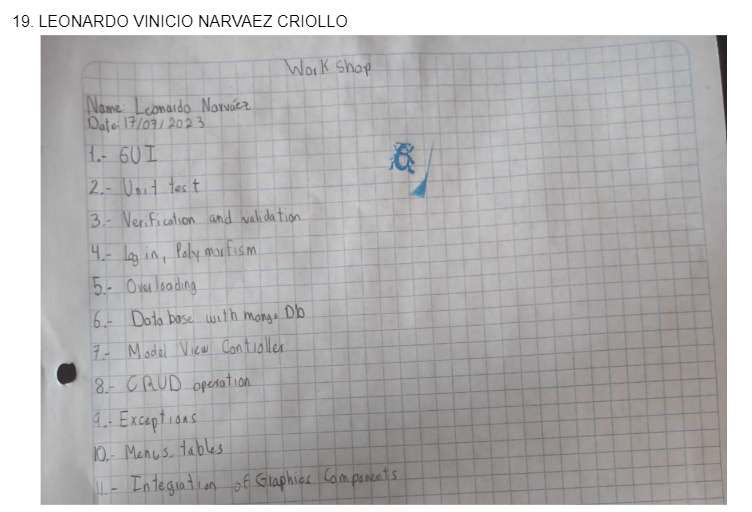 19. LEONARDO VINICIO NARVAEZ CRIOLLO
Work Shop
Name: Leonardo Narváez
Date: 17/07/2023
1.- GUI
2.- Unit test
3.- Verification and validation
4.- Log in, Polymorfism
5.- Overloading
6.- Data base with mongo Db
7.- Model View Controller
8.- CRUD operation
9.- Exceptions
10.- Menus, tables
11.- Integration of Graphics Components